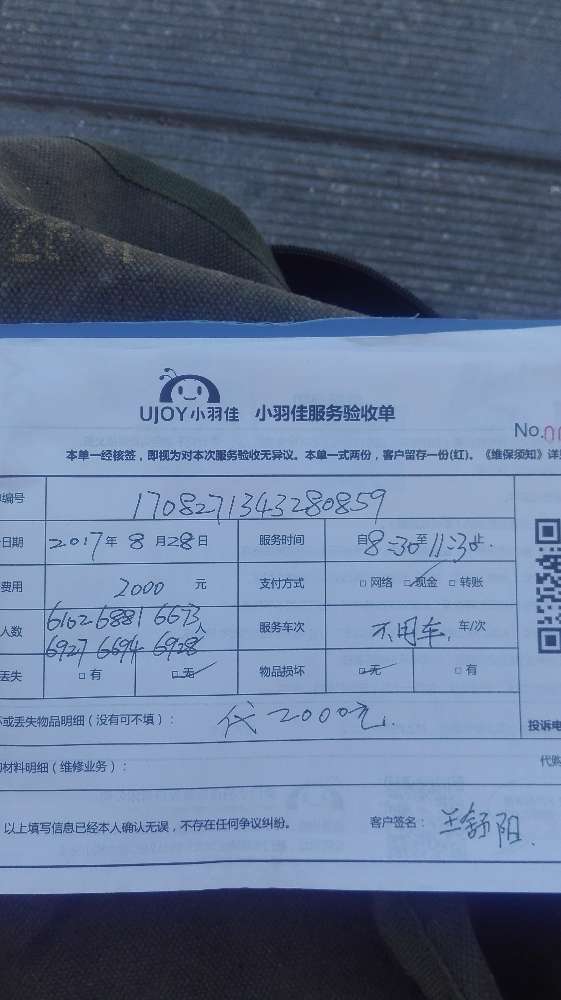 UJOY小羽佳 小羽佳服务验收单
No.00
本单一经核签，即视为对本次服务验收无异议。本单一式两份，客户留存一份(红)。《维保须知》详
编号 1708271343280859
日期 2017年8月28日 服务时间 自8:30至11:30止.
费用 2000 元 支付方式 □网络 □现金 □转账
人数 6162 6881 6673 人 服务车次 不用车, 车/次
6927 6694 6928
丢失 □有 □无 物品损坏 □无 □有
或丢失物品明细（没有可不填）： 代2000元. 投诉电
材料明细（维修业务）： 代购
以上填写信息已经本人确认无误，不存在任何争议纠纷。 客户签名： 王舒阳.